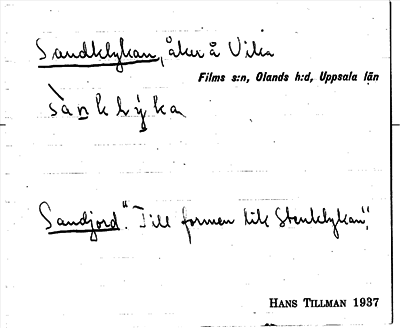 Sandklykan, åker å Vika
Films s:n, Olands h:d, Uppsala län
sànklỳka
Sandjord". Till formen lik Stenklykan",
HANS TILLMAN 1937